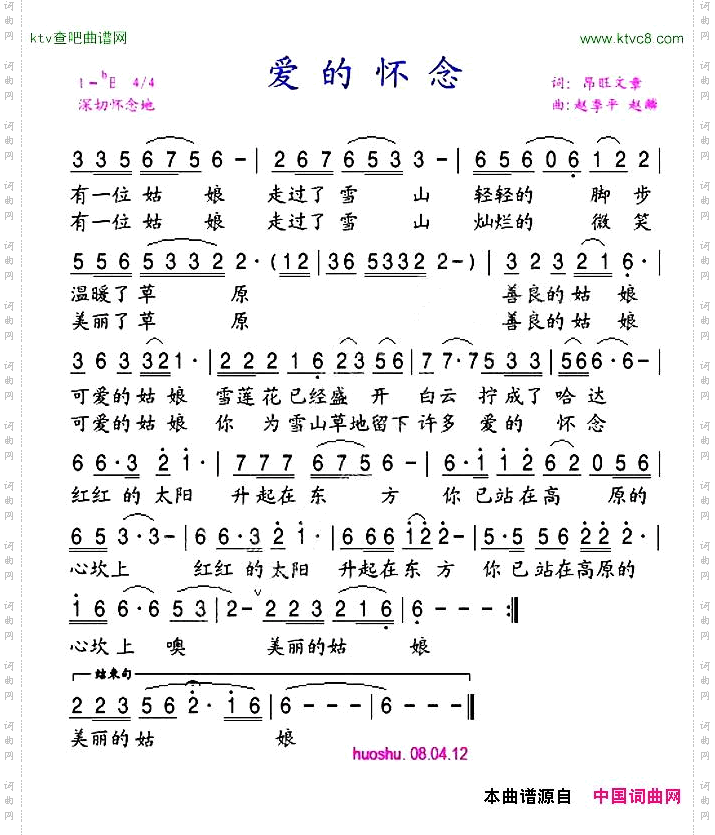 ktv查吧曲谱网
www.ktvc8.com
爱的怀念
1=♭B 4/4
深切怀念地
词: 昂旺文章
曲: 赵季平 赵麟
3 3 5 6 7 5 6 - | 2 6 7 6 5 3 3 - | 6 5 6 0 6 1 2 2 |
有一位姑 娘 走过了雪 山 轻轻的 脚 步
有一位姑 娘 走过了雪 山 灿烂的 微 笑
5 5 6 5 3 3 2 2 · (1 2 | 3 6 5 3 3 2 2 - ) | 3 2 3 2 1 6 · |
温暖了草 原 善良的姑 娘
美丽了草 原 善良的姑 娘
3 6 3 3 2 1 · | 2 2 2 1 6 2 3 5 6 | 7 7 · 7 5 3 3 | 5 6 6 6 · 6 - |
可爱的姑 娘 雪莲花已经盛 开 白云 拧成了哈 达
可爱的姑 娘 你 为雪山草地留下 许多 爱的 怀 念
6 6 · 3 2 1 · | 7 7 7 6 7 5 6 - | 6 · 1 1 2 6 2 0 5 6 |
红红的太阳 升起在东 方 你已站在高 原的
6 5 3 · 3 - | 6 6 · 3 2 1 · | 6 6 6 1 2 2 - | 5 · 5 5 6 2 2 6 |
心坎上 红红的太阳 升起在东方 你已站在高原的
1 6 6 · 6 5 3 | 2 - ∨ 2 2 3 2 1 6 | 6 - - - :|
心坎上 噢 美丽的姑 娘
结束句
2 2 3 5 6 2 · 1 6 | 6 - - - | 6 - - - |
美丽的姑 娘
huoshu. 08.04.12
本曲谱源自 中国词曲网
词曲网